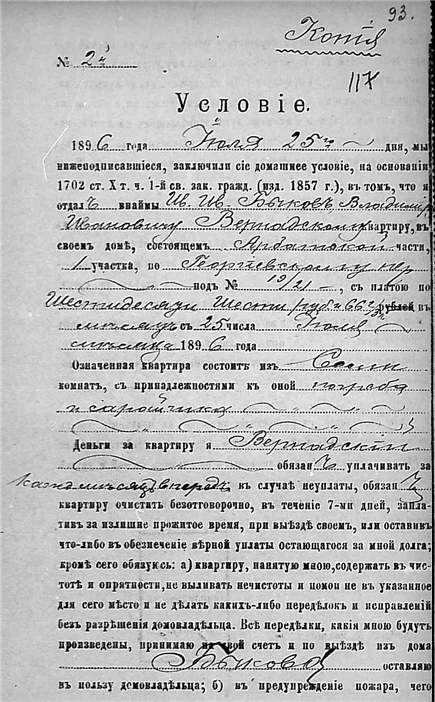 93.
Копія
№ 24
117
Условіе.
1896 года Іюля 25 дня, мы
нижеподписавшіеся, заключили сіе домашнее условіе, на основаніи
1702 ст. X т. ч. 1-й св. зак. гражд. (изд. 1857 г.), въ томъ, что я
отдалъ внаймы Ив. Ив. Быковъ, Владиміру
Ивановичу Вернадскому квартиру, въ
своемъ домѣ, состоящемъ Арбатской части,
1 участка, по Георгіевскому пер.
подъ № 19/21, съ платою по
Шестидесяти Шести руб 66 к рублей въ
мѣсяцъ съ 25 числа Іюля
мѣсяца 1896 года
Означенная квартира состоитъ изъ Семи
комнатъ, съ принадлежностями къ оной погреба
и сарайчика
Деньги за квартиру я Вернадскій
обязанъ уплачивать за
каждый мѣсяцъ впередъ въ случаѣ неуплаты, обязанъ
квартиру очистить безотговорочно, въ теченіе 7-ми дней, запла-
тивъ за излишне прожитое время, при выѣздѣ своемъ, или оставивъ
что-либо въ обезпеченіе вѣрной уплаты остающагося за мной долга;
кромѣ сего обязуюсь: а) квартиру, нанятую мною, содержать въ чис-
тотѣ и опрятности, не выливать нечистоты и помои не въ указанное
для сего мѣсто и не дѣлать какихъ-либо передѣлокъ и исправленій
безъ разрѣшенія домовладѣльца. Всѣ передѣлки, какія мною будутъ
произведены, принимаю на свой счетъ и по выѣздѣ изъ дома
Быкова оставляю
въ пользу домовладѣльца; б) въ предупрежденіе пожара, чего